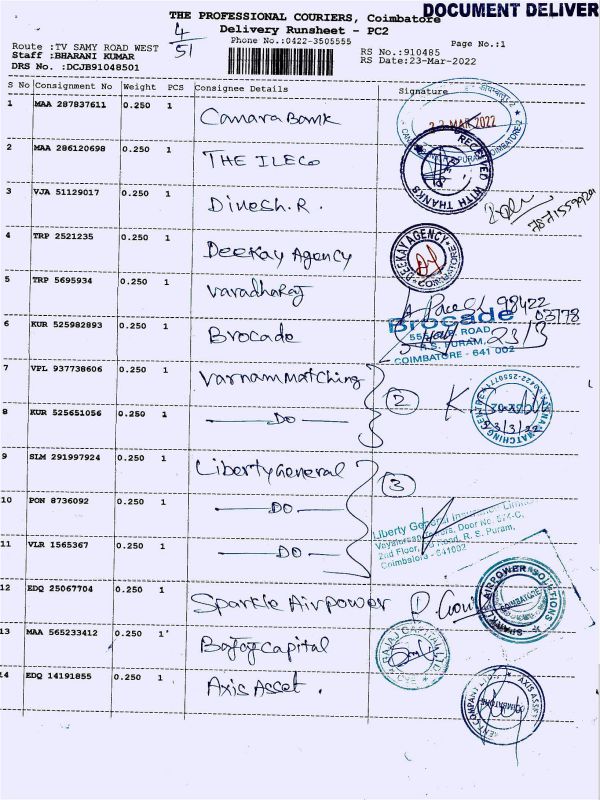 THE PROFESSIONAL COURIERS, Coimbatore
DOCUMENT DELIVER
4/51
Delivery Runsheet - PC2
Phone No.:0422-3505555
Page No.:1
Route :TV SAMY ROAD WEST
Staff :BHARANI KUMAR
DRS No. :DCJB91048501
RS No.:910485
RS Date:23-Mar-2022
S No Consignment No Weight PCS Consignee Details Signature
1 MAA 287837611 0.250 1 Canara Bank
MAR 2022
2 MAA 286120698 0.250 1 THE ILECo
RECEIVED WITH THANKS
3 VJA 51129017 0.250 1 Dinesh.R.
4 TRP 2521235 0.250 1 Deekay Agency
DEEKAY AGENCY COIMBATORE
5 TRP 5695934 0.250 1 Varadharaj
98422 03778
6 KUR 525982893 0.250 1 Brocade
Brocade
ROAD,
R.S. PURAM,
COIMBATORE - 641 002
23/3
7 VPL 937738606 0.250 1 Varnam Matching
2
8 KUR 525651056 0.250 1 — Do —
9 SLM 291997924 0.250 1 Liberty General
3
10 PON 8736092 0.250 1 — Do —
Liberty General Insurance Limited
Door No. 574-C,
2nd Floor, Road, R. S. Puram,
Coimbatore - 641002
11 VLR 1565367 0.250 1 — Do —
12 EDQ 25067704 0.250 1 Sparkle Airpower
AIRPOWER SOLUTIONS
COIMBATORE
13 MAA 565233412 0.250 1 Bajaj Capital
14 EDQ 14191855 0.250 1 Axis Asset.
AXIS ASSET